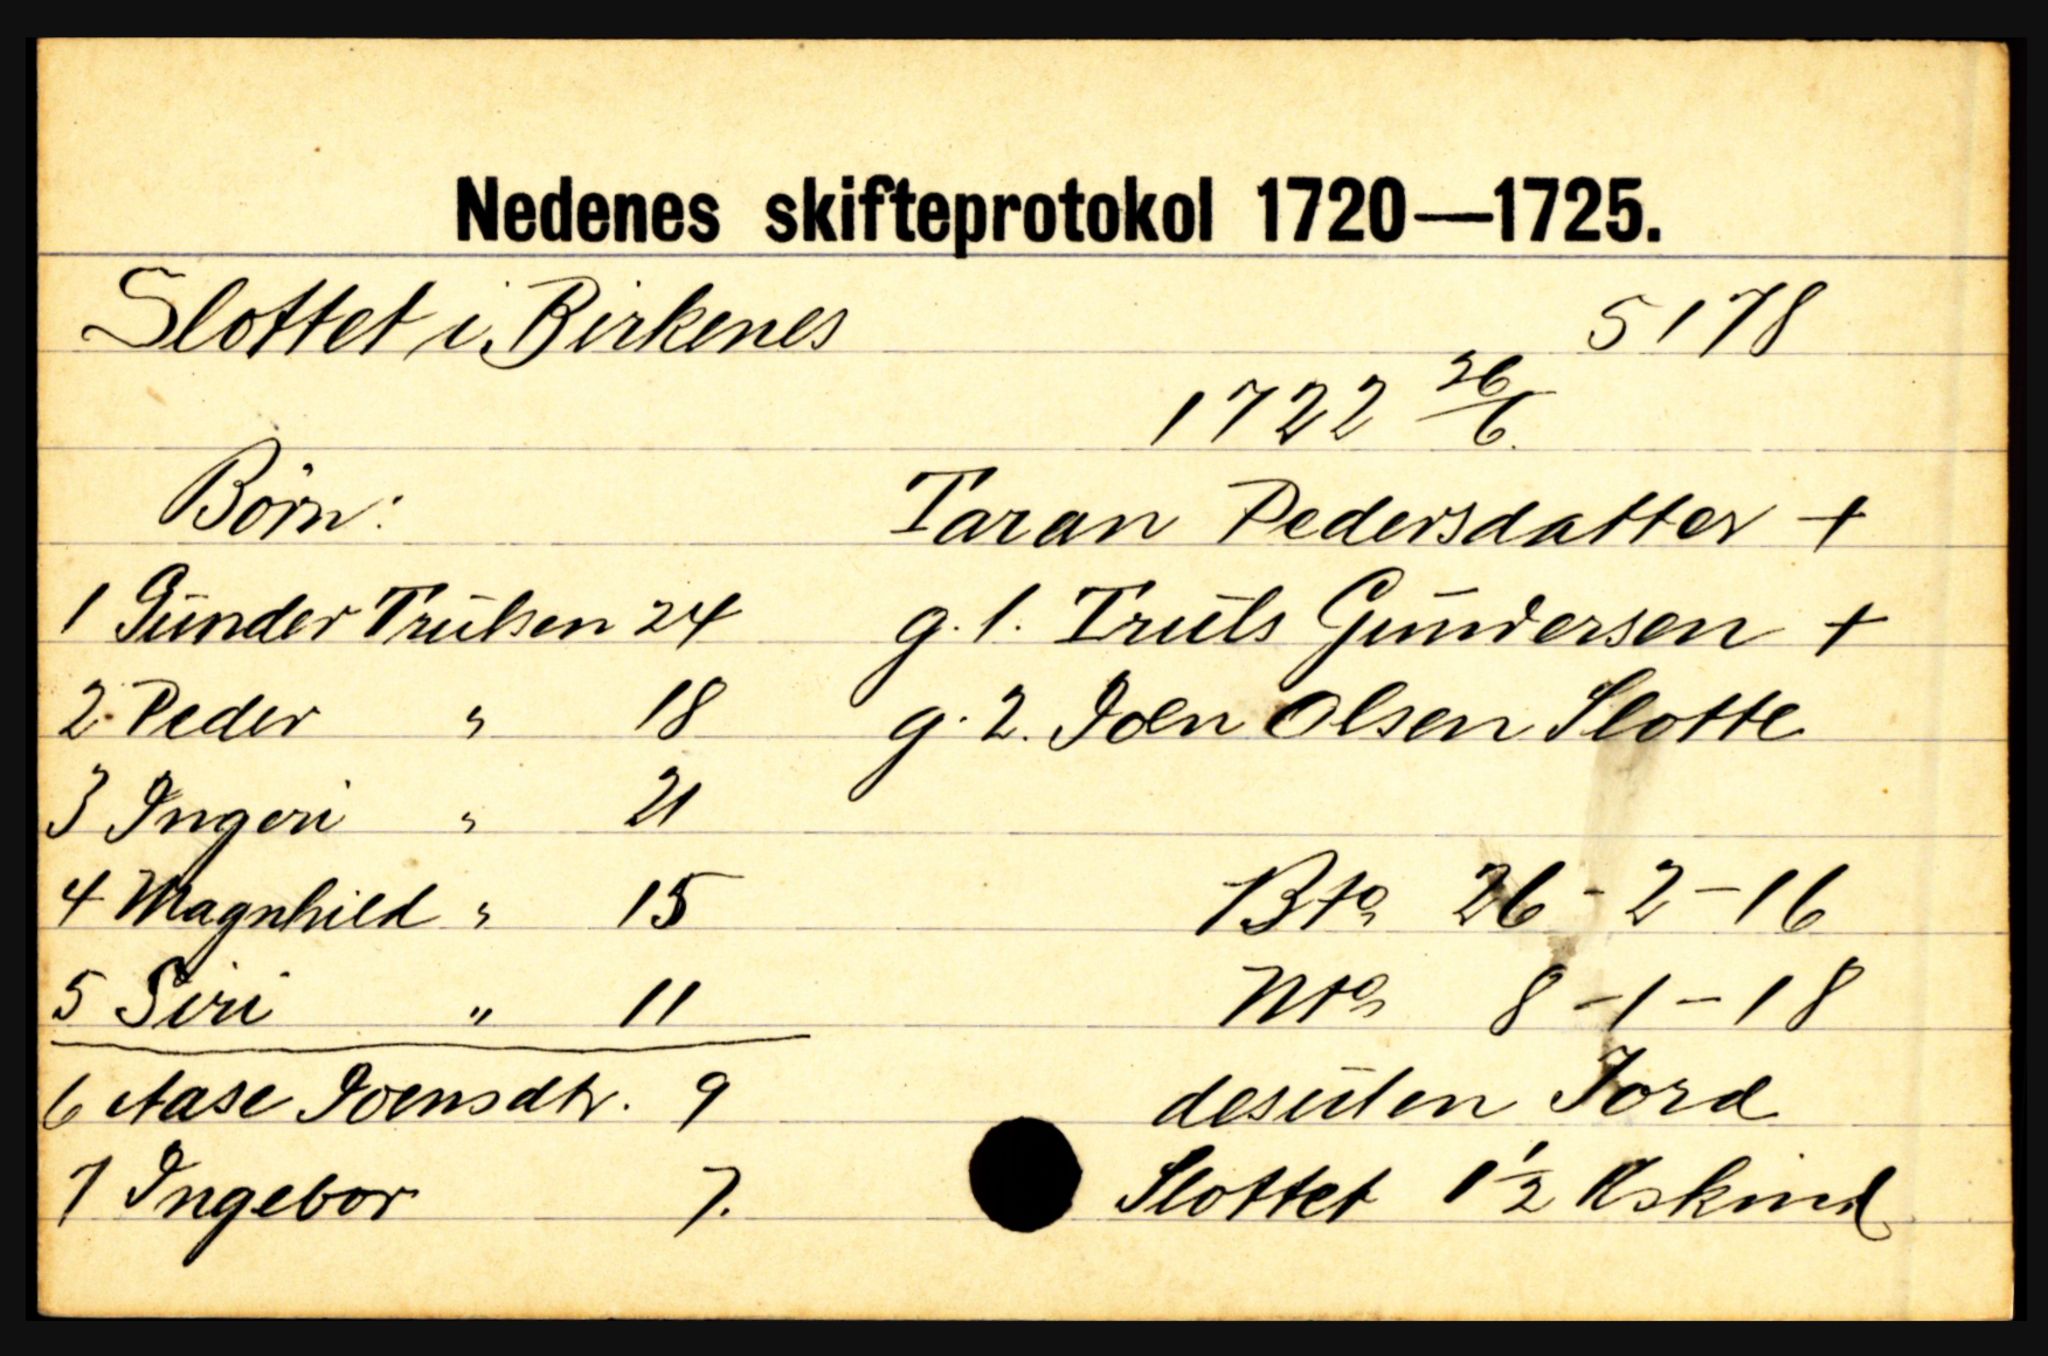 Nedenes skifteprotokol 1720—1725.
Slottet i Birkenes 5178
1722 26/6.
Børn: Taran Pedersdatter +
1 Gunder Trulsen 24 g. 1. Truls Gundersen +
2 Peder " 18 g. 2. Joen Olsen Slotte
3 Ingeri " 21
4 Magnhild " 15 Bto 26-2-16
5 Siri " 11 Nto 8-1-18
6 Aase Joensdtr. 9 desuten Jord
7 Ingebor 7. Slottet 1 1/2 Kskind